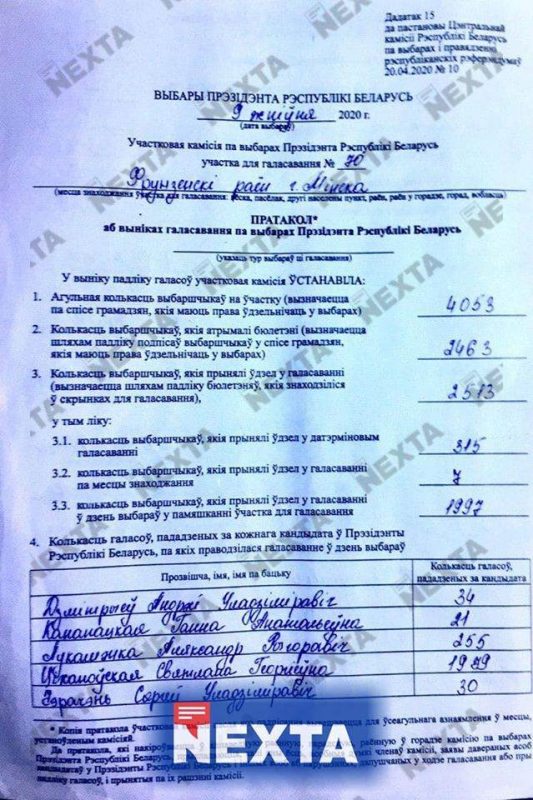 Дадатак 15
да пастановы Цэнтральнай
камісіі Рэспублікі Беларусь
па выбарах і правядзенні
рэспубліканскіх рэферэндумаў
20.04.2020 № 10
ВЫБАРЫ ПРЭЗІДЭНТА РЭСПУБЛІКІ БЕЛАРУСЬ
9 жніўня 2020 г.
(дата выбараў)
Участковая камісія па выбарах Прэзідэнта Рэспублікі Беларусь
участка для галасавання № 70
Фрунзенскі раён г. Мінска
(месца знаходжання ўчастка для галасавання: вёска, пасёлак, другі населены пункт, раён, раён у горадзе, горад, вобласць)
ПРАТАКОЛ*
аб выніках галасавання па выбарах Прэзідэнта Рэспублікі Беларусь
(указаць тур выбараў ці галасавання)
У выніку падліку галасоў участковая камісія ЎСТАНАВІЛА:
1. Агульная колькасць выбаршчыкаў на ўчастку (вызначаецца
па спісе грамадзян, якія маюць права ўдзельнічаць у выбарах) 4053
2. Колькасць выбаршчыкаў, якія атрымалі бюлетэні (вызначаецца
шляхам падліку подпісаў выбаршчыкаў у спісе грамадзян,
якія маюць права ўдзельнічаць у выбарах) 2463
3. Колькасць выбаршчыкаў, якія прынялі ўдзел у галасаванні
(вызначаецца шляхам падліку бюлетэняў, якія знаходзіліся
ў скрынках для галасавання),
у тым ліку:
3.1. колькасць выбаршчыкаў, якія прынялі ўдзел у датэрміновым
галасаванні
3.2. колькасць выбаршчыкаў, якія прынялі ўдзел у галасаванні
па месцы знаходжання 7
3.3. колькасць выбаршчыкаў, якія прынялі ўдзел у галасаванні
ў дзень выбараў у памяшканні ўчастка для галасавання 1997
4. Колькасць галасоў, пададзеных за кожнага кандыдата ў Прэзідэнты
Рэспублікі Беларусь, па якіх праводзілася галасаванне ў дзень выбараў
Прозвішча, імя, імя па бацьку Колькасць галасоў, пададзеных за кандыдата
Дзмітрыеў Андрэй Уладзіміравіч 34
Канапацкая Ганна Анатольеўна 21
Лукашэнка Аляксандр Рыгоравіч 255
Ціханоўская Святлана Георгіеўна
Чэрачэнь Сяргей Уладзіміравіч 30
* Копія пратакола ўчастковай для ўсеагульнага азнаямлення ў месцы,
устаноўленым камісіяй.
NEXTA